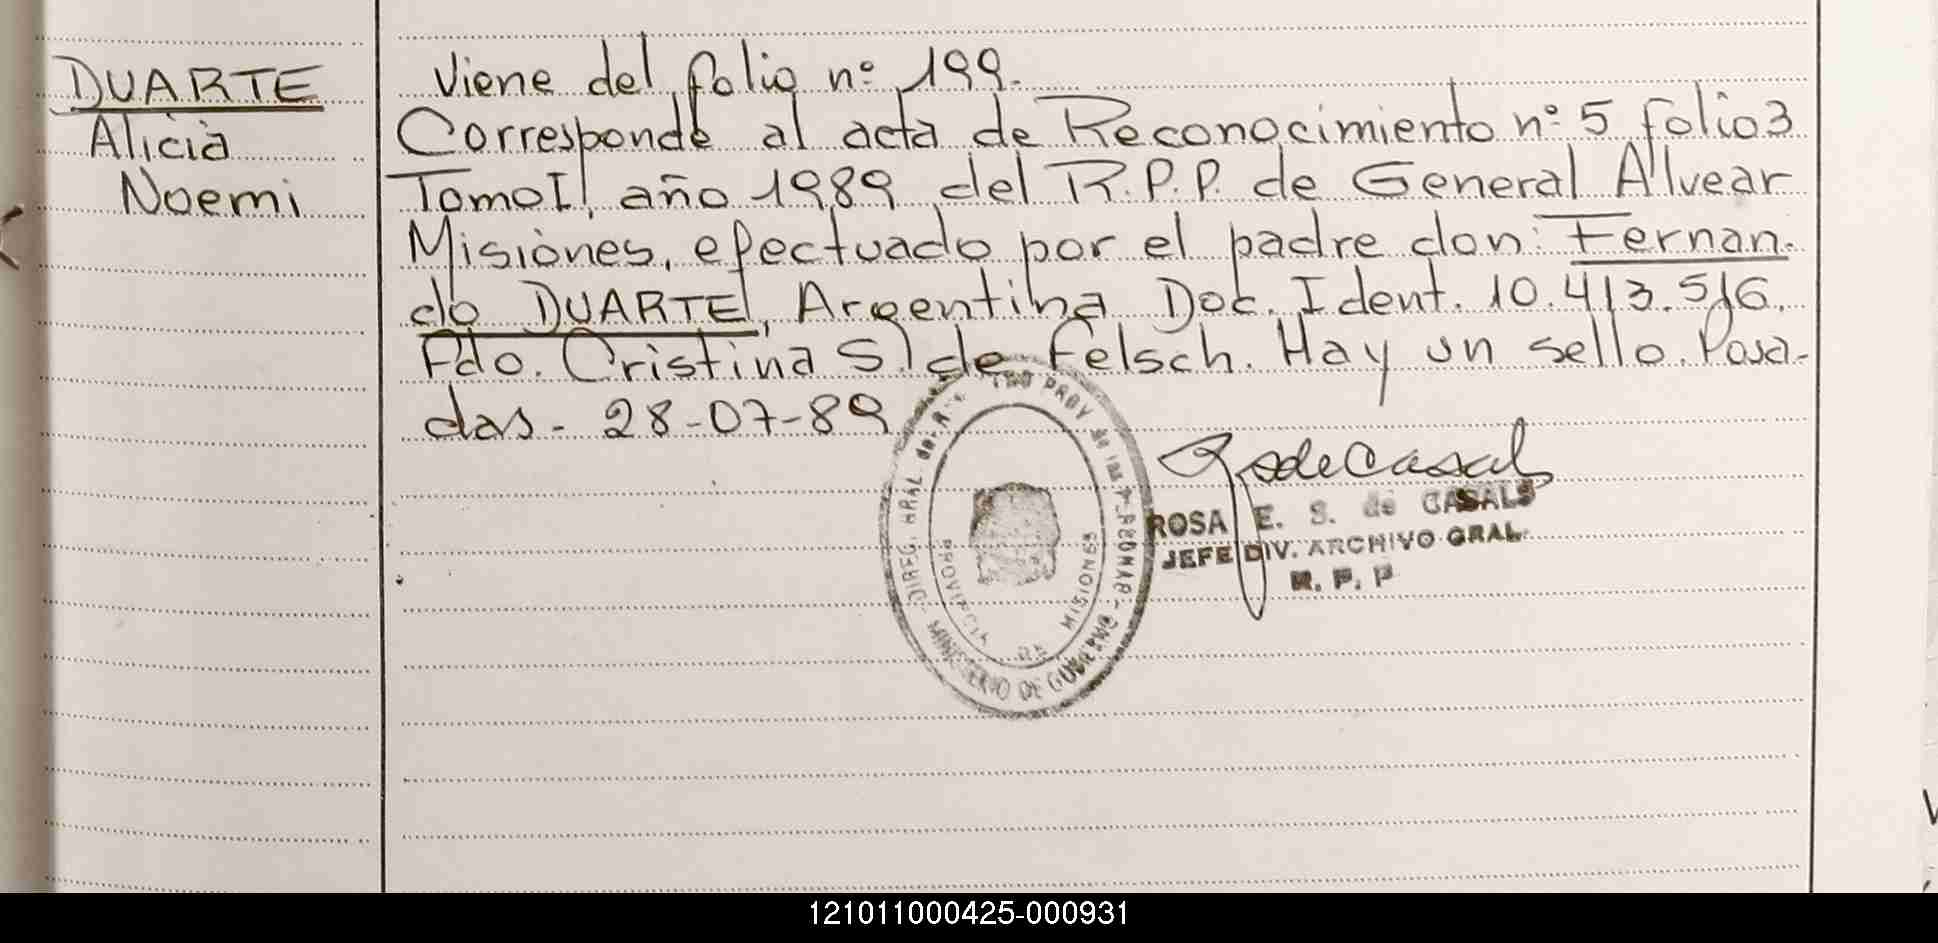 DUARTE
Alicia
Noemi
Viene del folio nº 199.
Corresponde al acta de Reconocimiento nº 5 folio 3
Tomo I, año 1989 del R.P.P. de General Alvear
Misiones, efectuado por el padre don: Fernan-
do DUARTE, Argentina Doc. Ident. 10.413.516.
Fdo. Cristina S. de Felsch. Hay un sello. Posa-
das - 28-07-89
ROSA E. S. de CASALS
JEFE DIV. ARCHIVO GRAL.
R. P. P
DIREG. GRAL del PROV de las
MINISTERIO DE GOBIERNO
PROVINCIA DE MISIONES
121011000425-000931